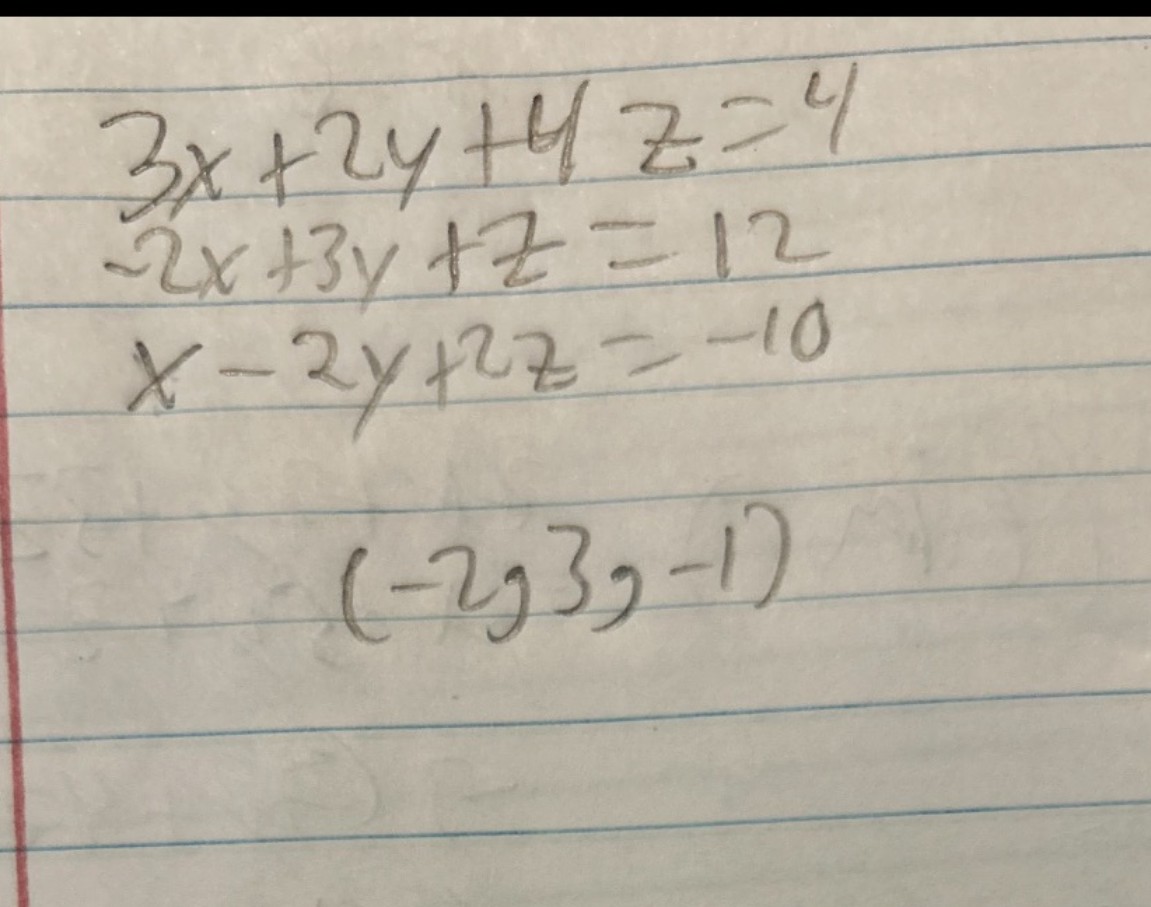 3x+2y+4z=4
-2x+3y+z=12
x-2y+2z=-10
(-2,3,-1)